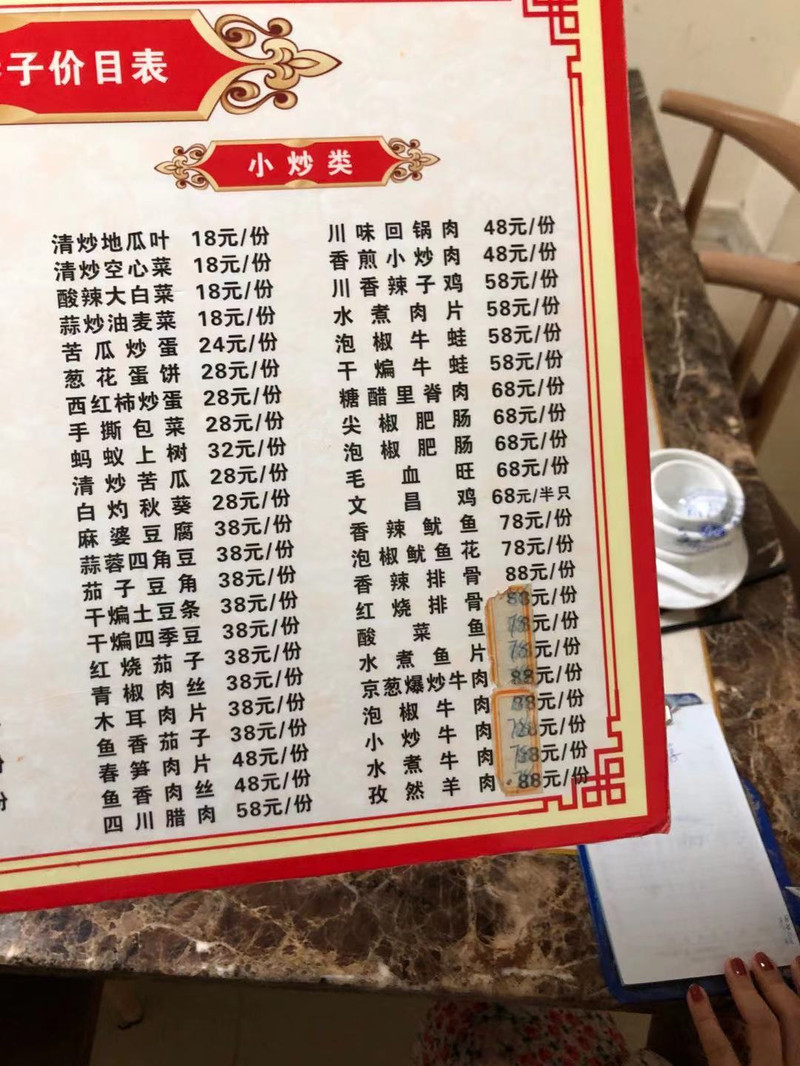 子价目表
小炒类
清炒地瓜叶 18元/份
清炒空心菜 18元/份
酸辣大白菜 18元/份
蒜炒油麦菜 18元/份
苦瓜炒蛋 24元/份
葱花蛋饼 28元/份
西红柿炒蛋 28元/份
手撕包菜 28元/份
蚂蚁上树 32元/份
清炒苦瓜 28元/份
白灼秋葵 28元/份
麻婆豆腐 38元/份
蒜蓉四角豆 38元/份
茄子豆角 38元/份
干煸土豆条 38元/份
干煸四季豆 38元/份
红烧茄子 38元/份
青椒肉丝 38元/份
木耳肉片 38元/份
鱼香茄子 38元/份
春笋肉片 48元/份
鱼香肉丝 48元/份
四川腊肉 58元/份
川味回锅肉 48元/份
香煎小炒肉 48元/份
川香辣子鸡 58元/份
水煮肉片 58元/份
泡椒牛蛙 58元/份
干煸牛蛙 58元/份
糖醋里脊肉 68元/份
尖椒肥肠 68元/份
泡椒肥肠 68元/份
毛血旺 68元/份
文昌鸡 68元/半只
香辣鱿鱼 78元/份
泡椒鱿鱼花 78元/份
香辣排骨 88元/份
红烧排骨 88元/份
酸菜鱼 元/份
水煮鱼片 元/份
京葱爆炒牛肉 88元/份
泡椒牛肉 元/份
小炒牛肉 元/份
水煮牛肉 元/份
孜然羊肉 88元/份